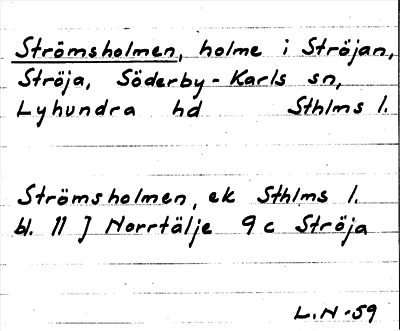 Strömsholmen, holme i Ströjan,
Ströja, Söderby-Karls sn,
Lyhundra hd Sthlms l.
Strömsholmen, ek Sthlms l.
bl. 11 J Norrtälje 9 c Ströja
L.N-59